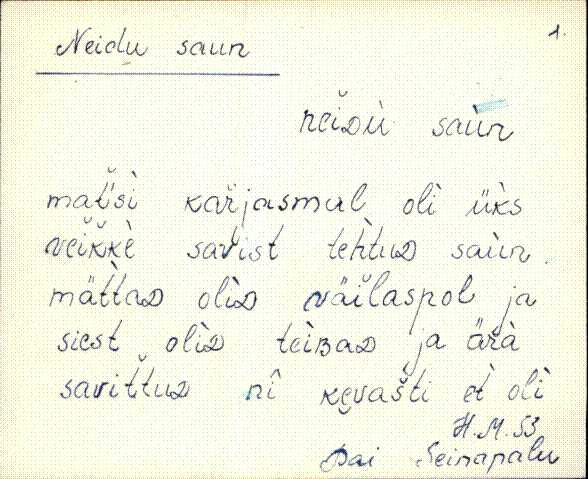 1.
Neidu saun
nẽi̮ᴅù saùn
mat̆'sì kar̆jasmal olì üks
veĭkkè savist tehtuᴅ saùn.
mättaᴅ olìᴅ väĭlaspol ja
siest olìᴅ teiʙaᴅ ja ärà
savit̆tuᴅ nî keväšti et olì
H.M. 53
Pai Seinapalu